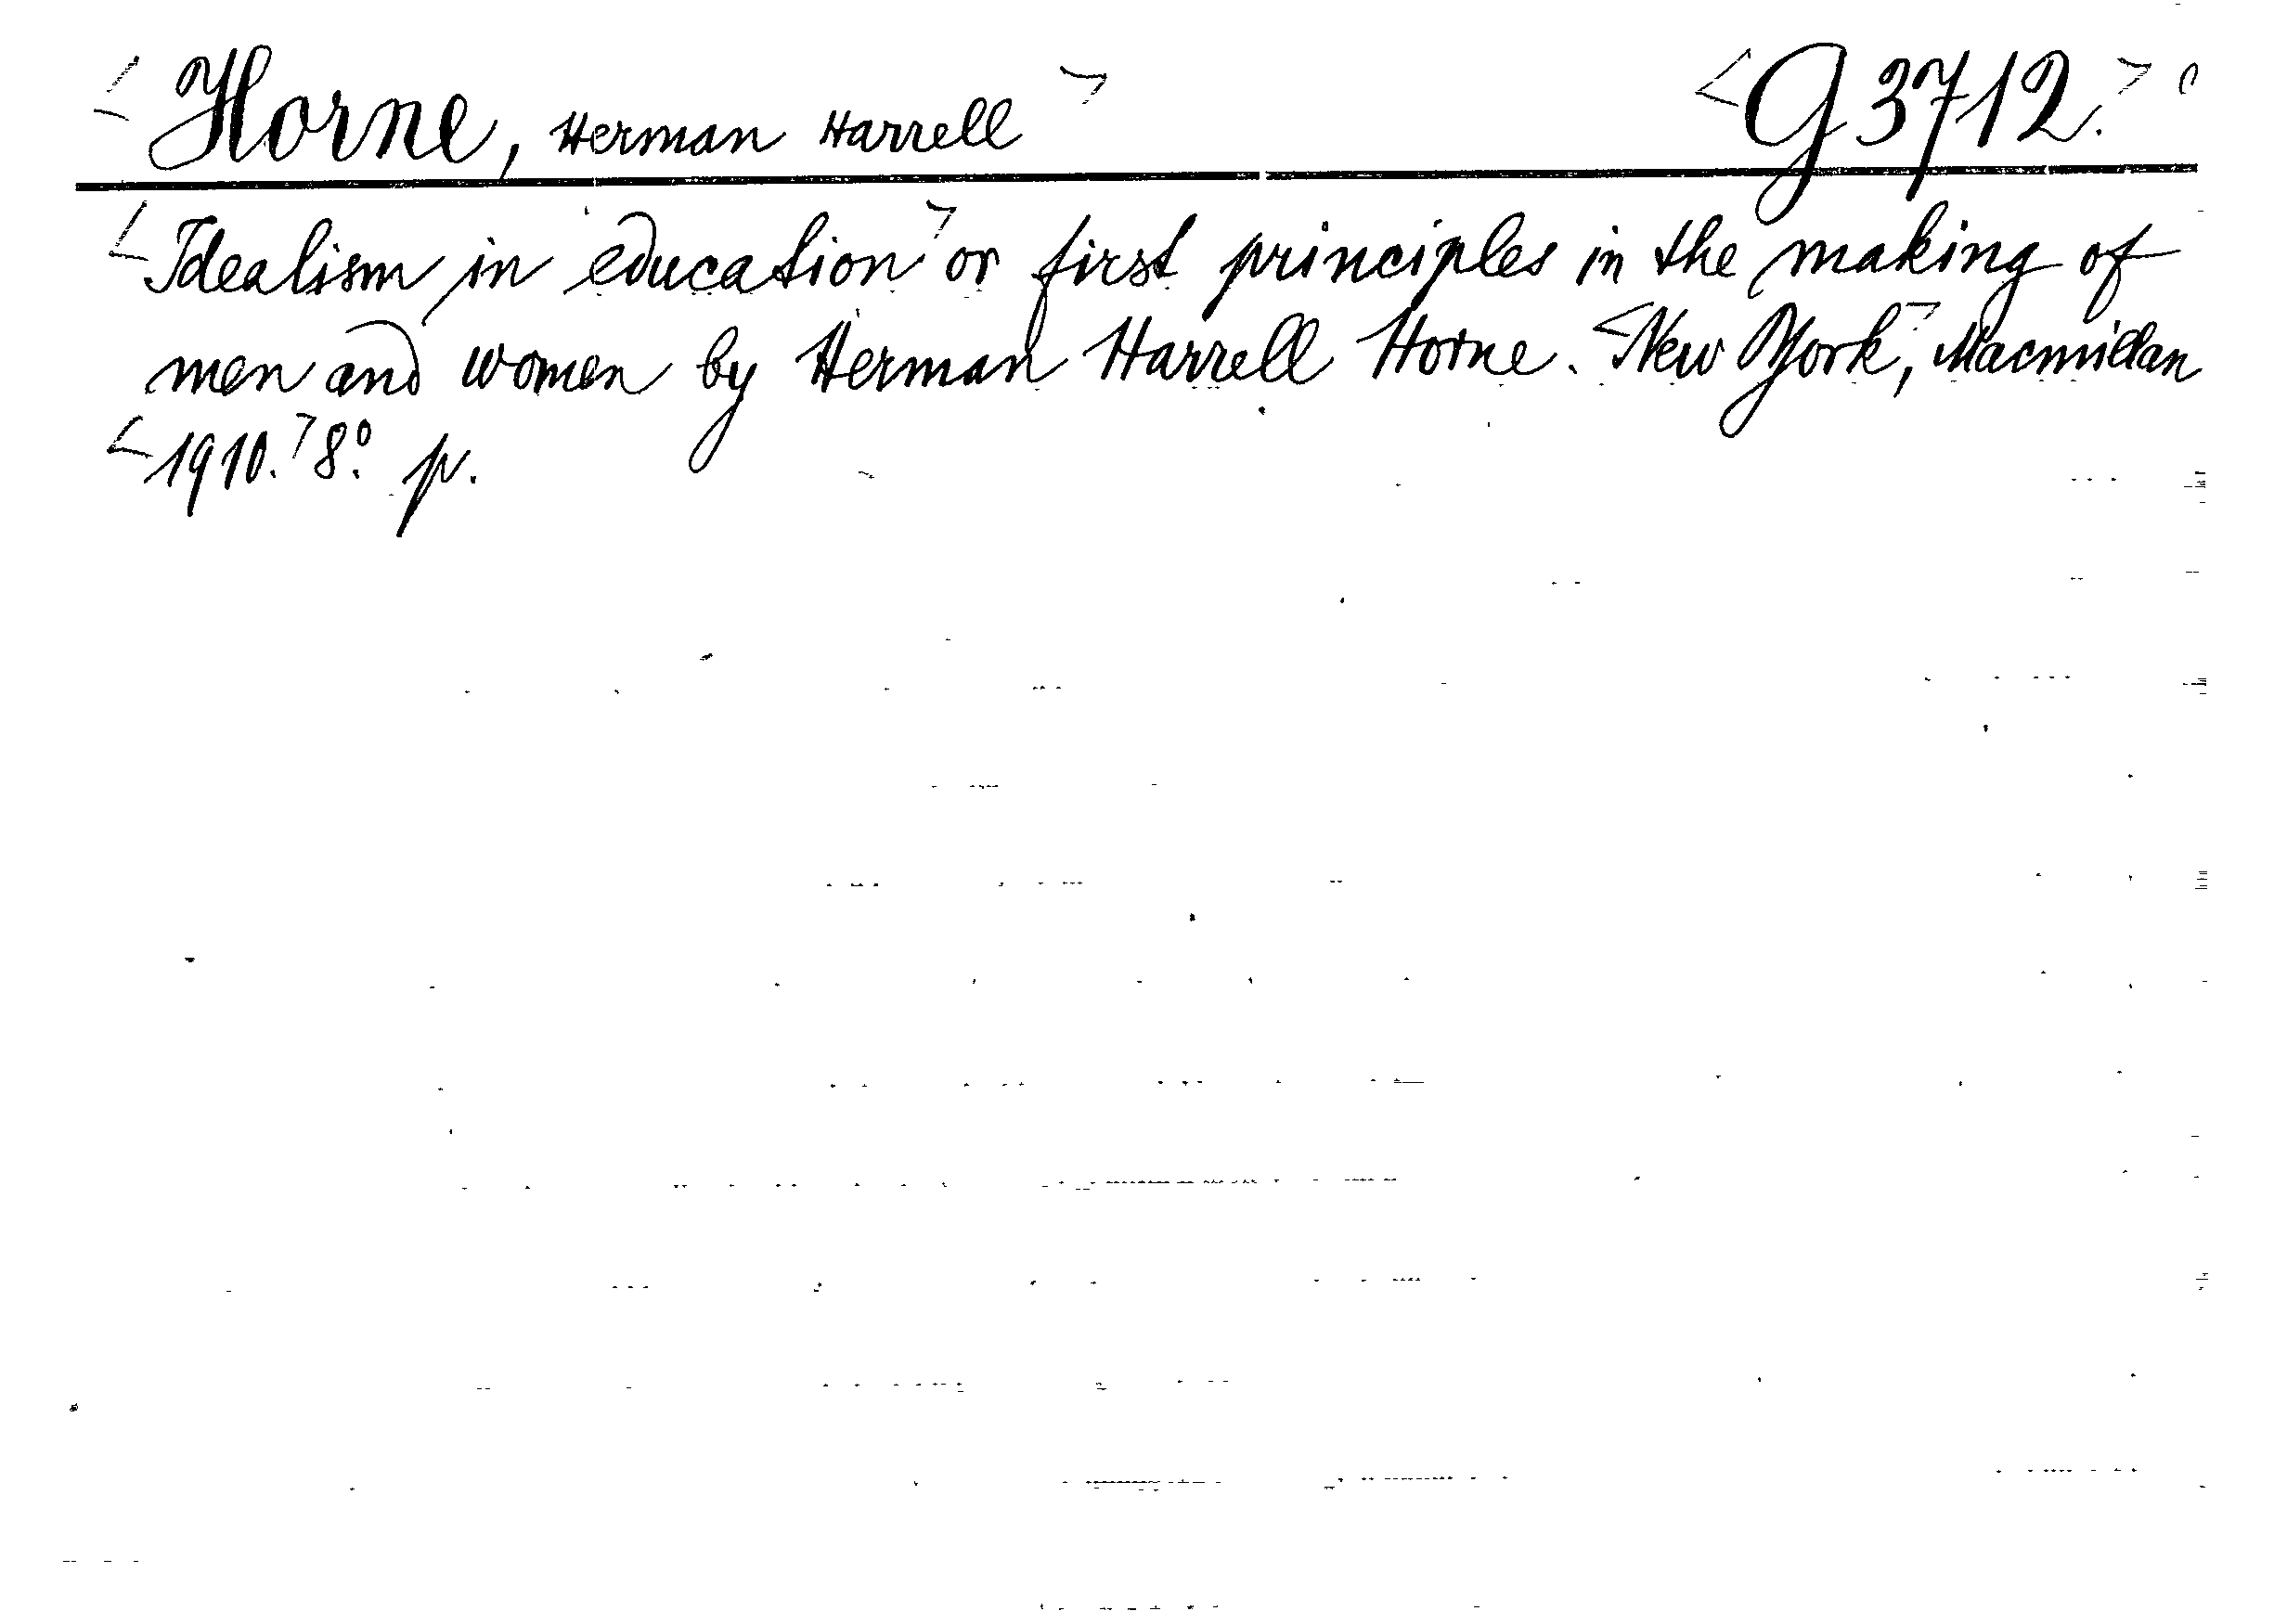 <Horne, Herman Harrell> <G 3712.>
<Idealism in education> or first principles in the making of
men and women by Herman Harrell Horne. <New York>, Macmillan
<1910.> 8º. p.